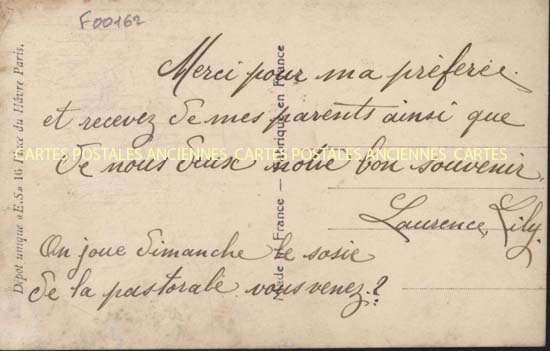 F00162
Merci pour ma préférée.
et recevez de mes parents ainsi que
de nous deux notre bon souvenir.
Laurence, Lily.
On joue dimanche le sosie
de la pastorale vous venez?
Dépôt unique « E.S » 16 Place du Hâvre Paris.
Made in France — Fabriqué en France
CARTES POSTALES ANCIENNES CARTES POSTALES ANCIENNES CARTES